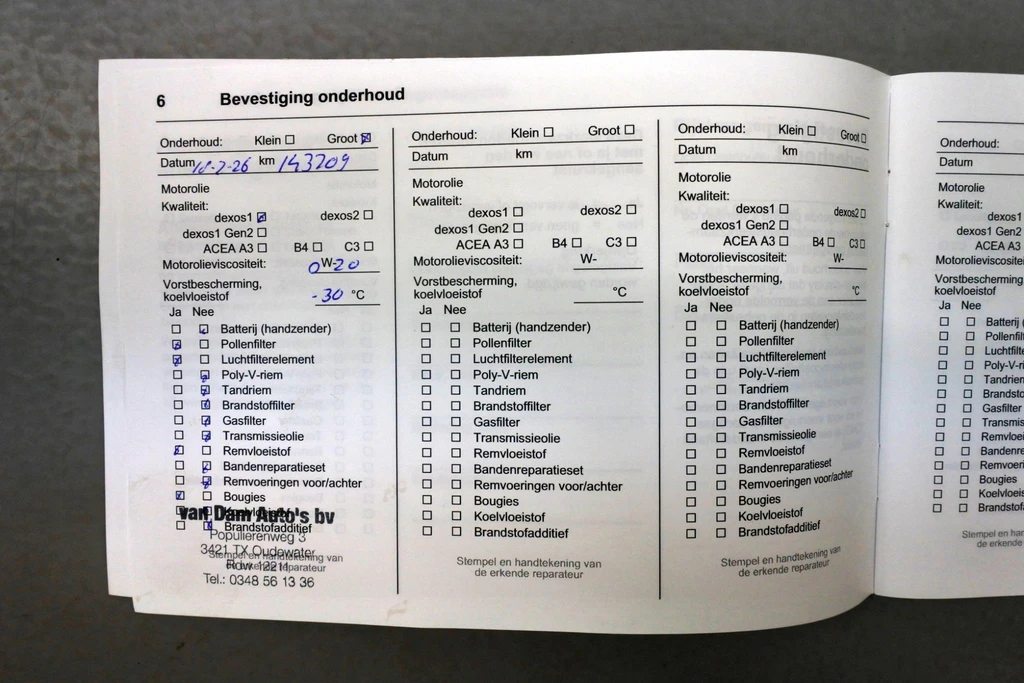 6 Bevestiging onderhoud
Onderhoud: Klein ☐ Groot ☒
Datum 18-2-26 km 143209
Motorolie
Kwaliteit:
dexos1 ☒ dexos2 ☐
dexos1 Gen2 ☐
ACEA A3 ☐ B4 ☐ C3 ☐
Motorolieviscositeit: 0W-20
Vorstbescherming,
koelvloeistof -30 °C
Ja Nee
☐ ☒ Batterij (handzender)
☒ ☐ Pollenfilter
☒ ☐ Luchtfilterelement
☐ ☒ Poly-V-riem
☐ ☒ Tandriem
☐ ☒ Brandstoffilter
☐ ☒ Gasfilter
☐ ☒ Transmissieolie
☒ ☐ Remvloeistof
☐ ☒ Bandenreparatieset
☐ ☒ Remvoeringen voor/achter
☒ ☐ Bougies
Koelvloeistof
☐ ☒ Brandstofadditief
van Dam Auto's bv
Populierenweg 3
3421 TX Oudewater
Stempel en handtekening van
de erkende reparateur
Rdw 12211
Tel.: 0348 56 13 36
Onderhoud: Klein ☐ Groot ☐
Datum km
Motorolie
Kwaliteit:
dexos1 ☐ dexos2 ☐
dexos1 Gen2 ☐
ACEA A3 ☐ B4 ☐ C3 ☐
Motorolieviscositeit: W-
Vorstbescherming,
koelvloeistof °C
Ja Nee
☐ ☐ Batterij (handzender)
☐ ☐ Pollenfilter
☐ ☐ Luchtfilterelement
☐ ☐ Poly-V-riem
☐ ☐ Tandriem
☐ ☐ Brandstoffilter
☐ ☐ Gasfilter
☐ ☐ Transmissieolie
☐ ☐ Remvloeistof
☐ ☐ Bandenreparatieset
☐ ☐ Remvoeringen voor/achter
☐ ☐ Bougies
☐ ☐ Koelvloeistof
☐ ☐ Brandstofadditief
Stempel en handtekening van
de erkende reparateur
Onderhoud: Klein ☐ Groot ☐
Datum km
Motorolie
Kwaliteit:
dexos1 ☐ dexos2 ☐
dexos1 Gen2 ☐
ACEA A3 ☐ B4 ☐ C3 ☐
Motorolieviscositeit: W-
Vorstbescherming,
koelvloeistof °C
Ja Nee
☐ ☐ Batterij (handzender)
☐ ☐ Pollenfilter
☐ ☐ Luchtfilterelement
☐ ☐ Poly-V-riem
☐ ☐ Tandriem
☐ ☐ Brandstoffilter
☐ ☐ Gasfilter
☐ ☐ Transmissieolie
☐ ☐ Remvloeistof
☐ ☐ Bandenreparatieset
☐ ☐ Remvoeringen voor/achter
☐ ☐ Bougies
☐ ☐ Koelvloeistof
☐ ☐ Brandstofadditief
Stempel en handtekening van
de erkende reparateur
Onderhoud:
Datum
Motorolie
Kwaliteit:
dexos1
dexos1 Gen
ACEA A3
Motorolieviscositei
Vorstbescherming,
koelvloeistof
Ja Nee
☐ ☐ Batterij (
☐ ☐ Pollenfil
☐ ☐ Luchtfilt
☐ ☐ Poly-V-ri
☐ ☐ Tandriem
☐ ☐ Brandsto
☐ ☐ Gasfilter
☐ ☐ Transmis
☐ ☐ Remvloei
☐ ☐ Bandenre
☐ ☐ Remvoeri
☐ ☐ Bougies
☐ ☐ Koelvloeis
☐ ☐ Brandstof
Stempel en han
de erkende